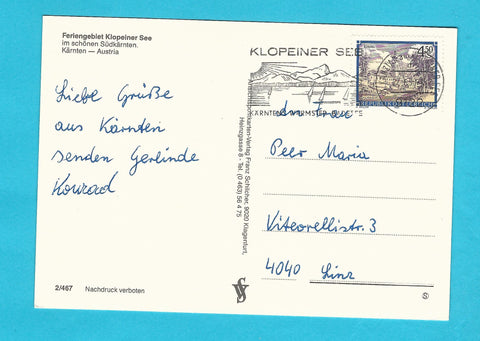 Feriengebiet Klopeiner See
im schönen Südkärnten.
Kärnten — Austria
Liebe Grüße
aus Kärnten
senden Gerlinde
Konrad
2/467 Nachdruck verboten
Franz Schilcher, 9020 Klagenfurt,
Heinzgasse 8 - Tel. (0 463) 56 4 75
KLOPEINER SEE
4.50
REPUBLIK ÖSTERREICH
An Frau
Peer Maria
Vitorellistr. 3
4040 Linz